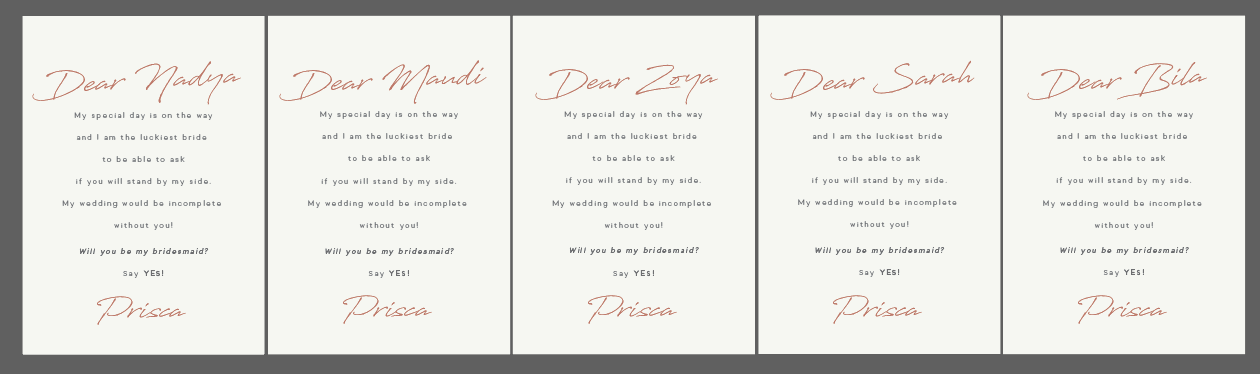 Dear Nadya
My special day is on the way
and I am the luckiest bride
to be able to ask
if you will stand by my side.
My wedding would be incomplete
without you!
Will you be my bridesmaid?
Say YES!
Prisca
Dear Maudi
My special day is on the way
and I am the luckiest bride
to be able to ask
if you will stand by my side.
My wedding would be incomplete
without you!
Will you be my bridesmaid?
Say YES!
Prisca
Dear Zoya
My special day is on the way
and I am the luckiest bride
to be able to ask
if you will stand by my side.
My wedding would be incomplete
without you!
Will you be my bridesmaid?
Say YES!
Prisca
Dear Sarah
My special day is on the way
and I am the luckiest bride
to be able to ask
if you will stand by my side.
My wedding would be incomplete
without you!
Will you be my bridesmaid?
Say YES!
Prisca
Dear Bila
My special day is on the way
and I am the luckiest bride
to be able to ask
if you will stand by my side.
My wedding would be incomplete
without you!
Will you be my bridesmaid?
Say YES!
Prisca